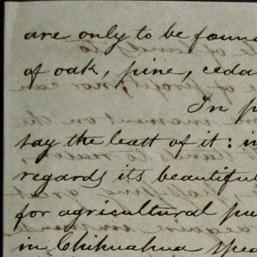 are only to be foun
of oak, pine, ceda
In p
say the least of it: i
regards its beautiful
for agricultural pu
in Chihuahua spea